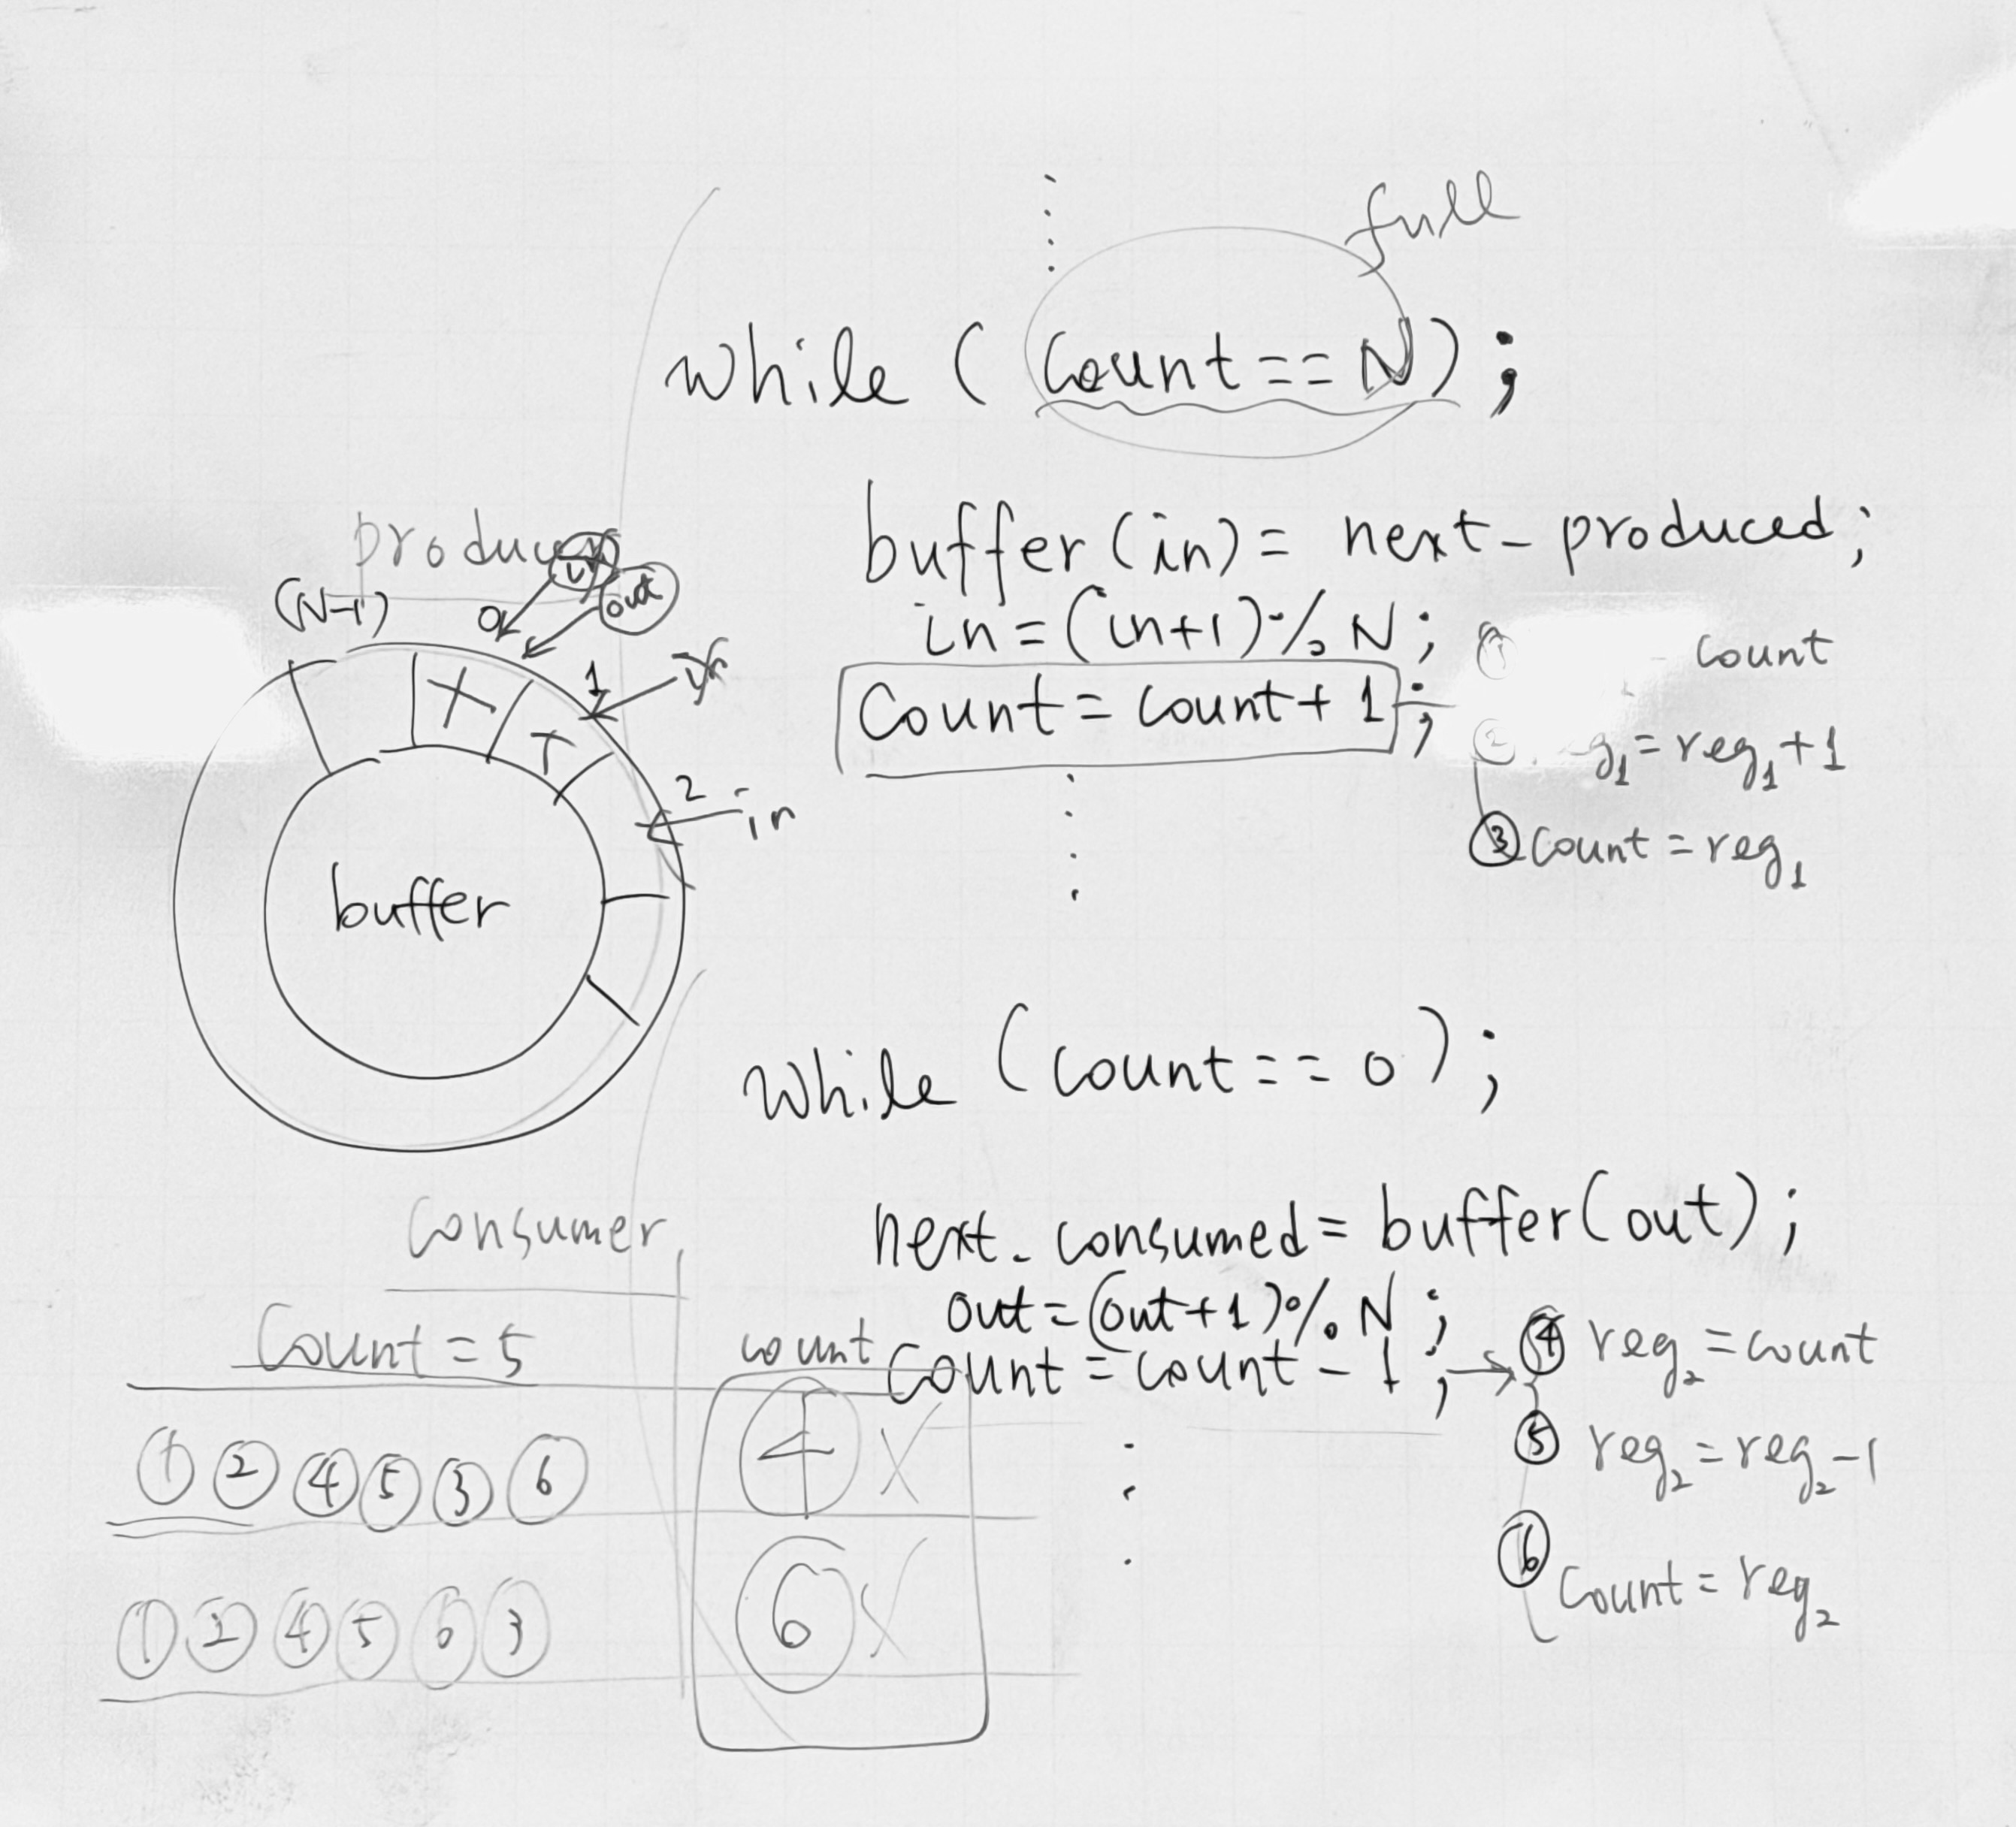 full
while ( Count == N ) ;
buffer (in) = next_produced ;
in = (in+1) % N ;
Count = count + 1 ;
① count
② = reg₁ + 1
③ Count = reg₁
producer
in
out
(N-1)
0
1
in
2
in
buffer
while ( count == 0 ) ;
next_consumed = buffer (out) ;
out = (out+1) % N ;
Count = count - 1 ; → ④ reg₂ = count
⑤ reg₂ = reg₂ - 1
⑥ Count = reg₂
Consumer
Count = 5 count
① ② ④ ⑤ ③ ⑥ 4 X
① ② ④ ⑤ ⑥ ③ 6 X